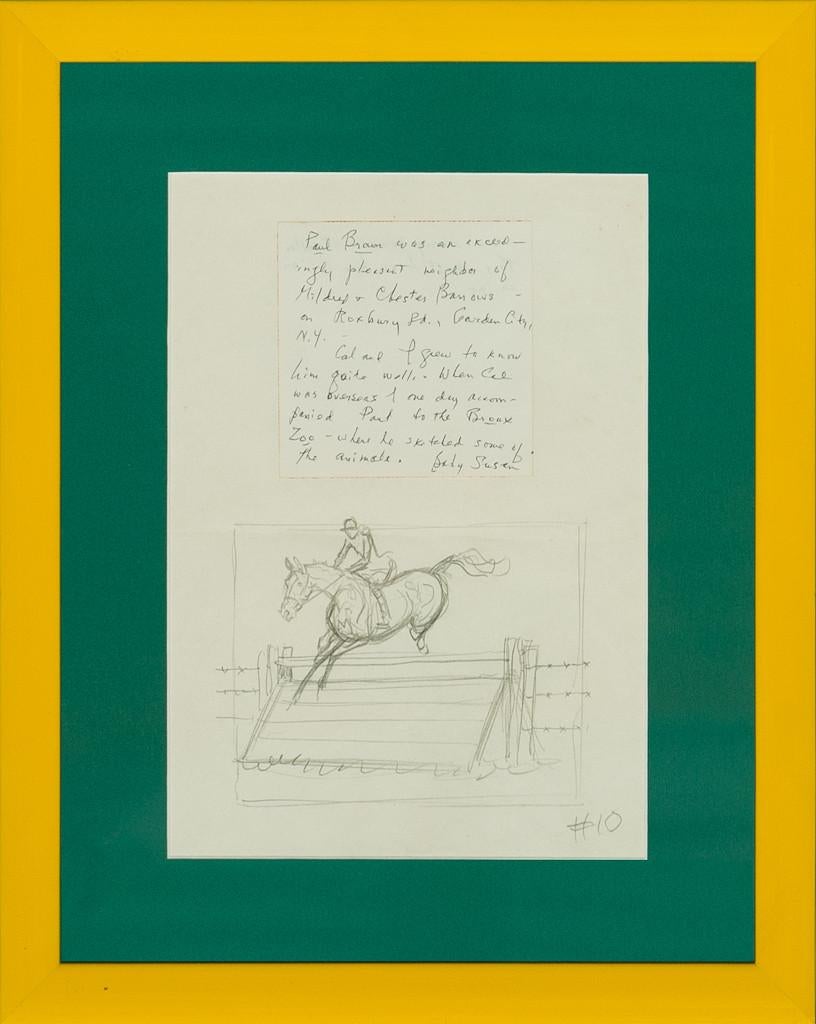 Paul Brown was an exceed-
ingly pleasant neighbor of
Mildred & Chester Barrows -
on Roxbury Rd., Garden City,
N.Y.
Cal and I grew to know
him quite well. - When Cal
was overseas I one day accom-
panied Paul to the Bronx
Zoo - where he sketched some of
the animals. Susan
#10